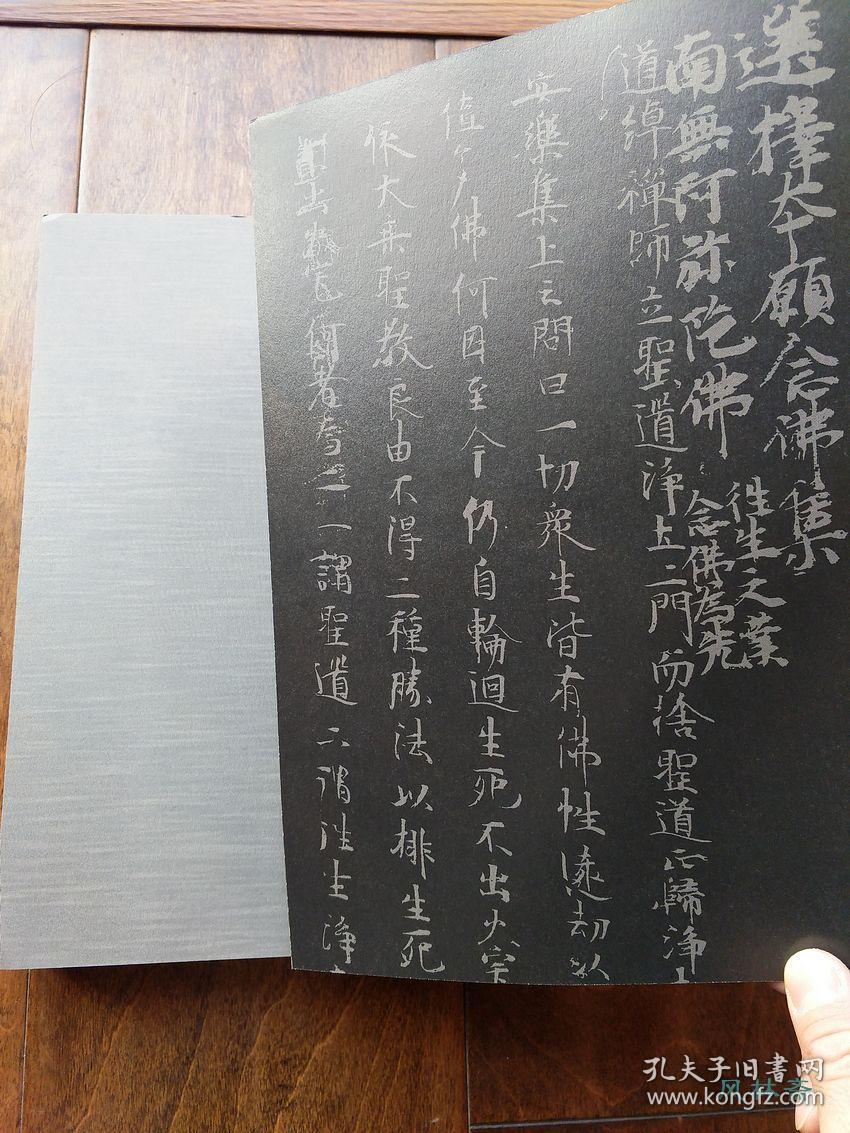 選擇本願念佛集
南無阿弥陀佛
往生之業
念佛為先
道綽禪師立聖道淨土二門而捨聖道正歸淨土
安樂集上云問曰一切衆生皆有佛性遠劫以
值多佛何因至今仍自輪迴生死不出火宅
依大乘聖教良由不得二種勝法以排生死
何者為二一謂聖道二謂往生淨
孔夫子旧书网
www.kongfz.com
风林斋